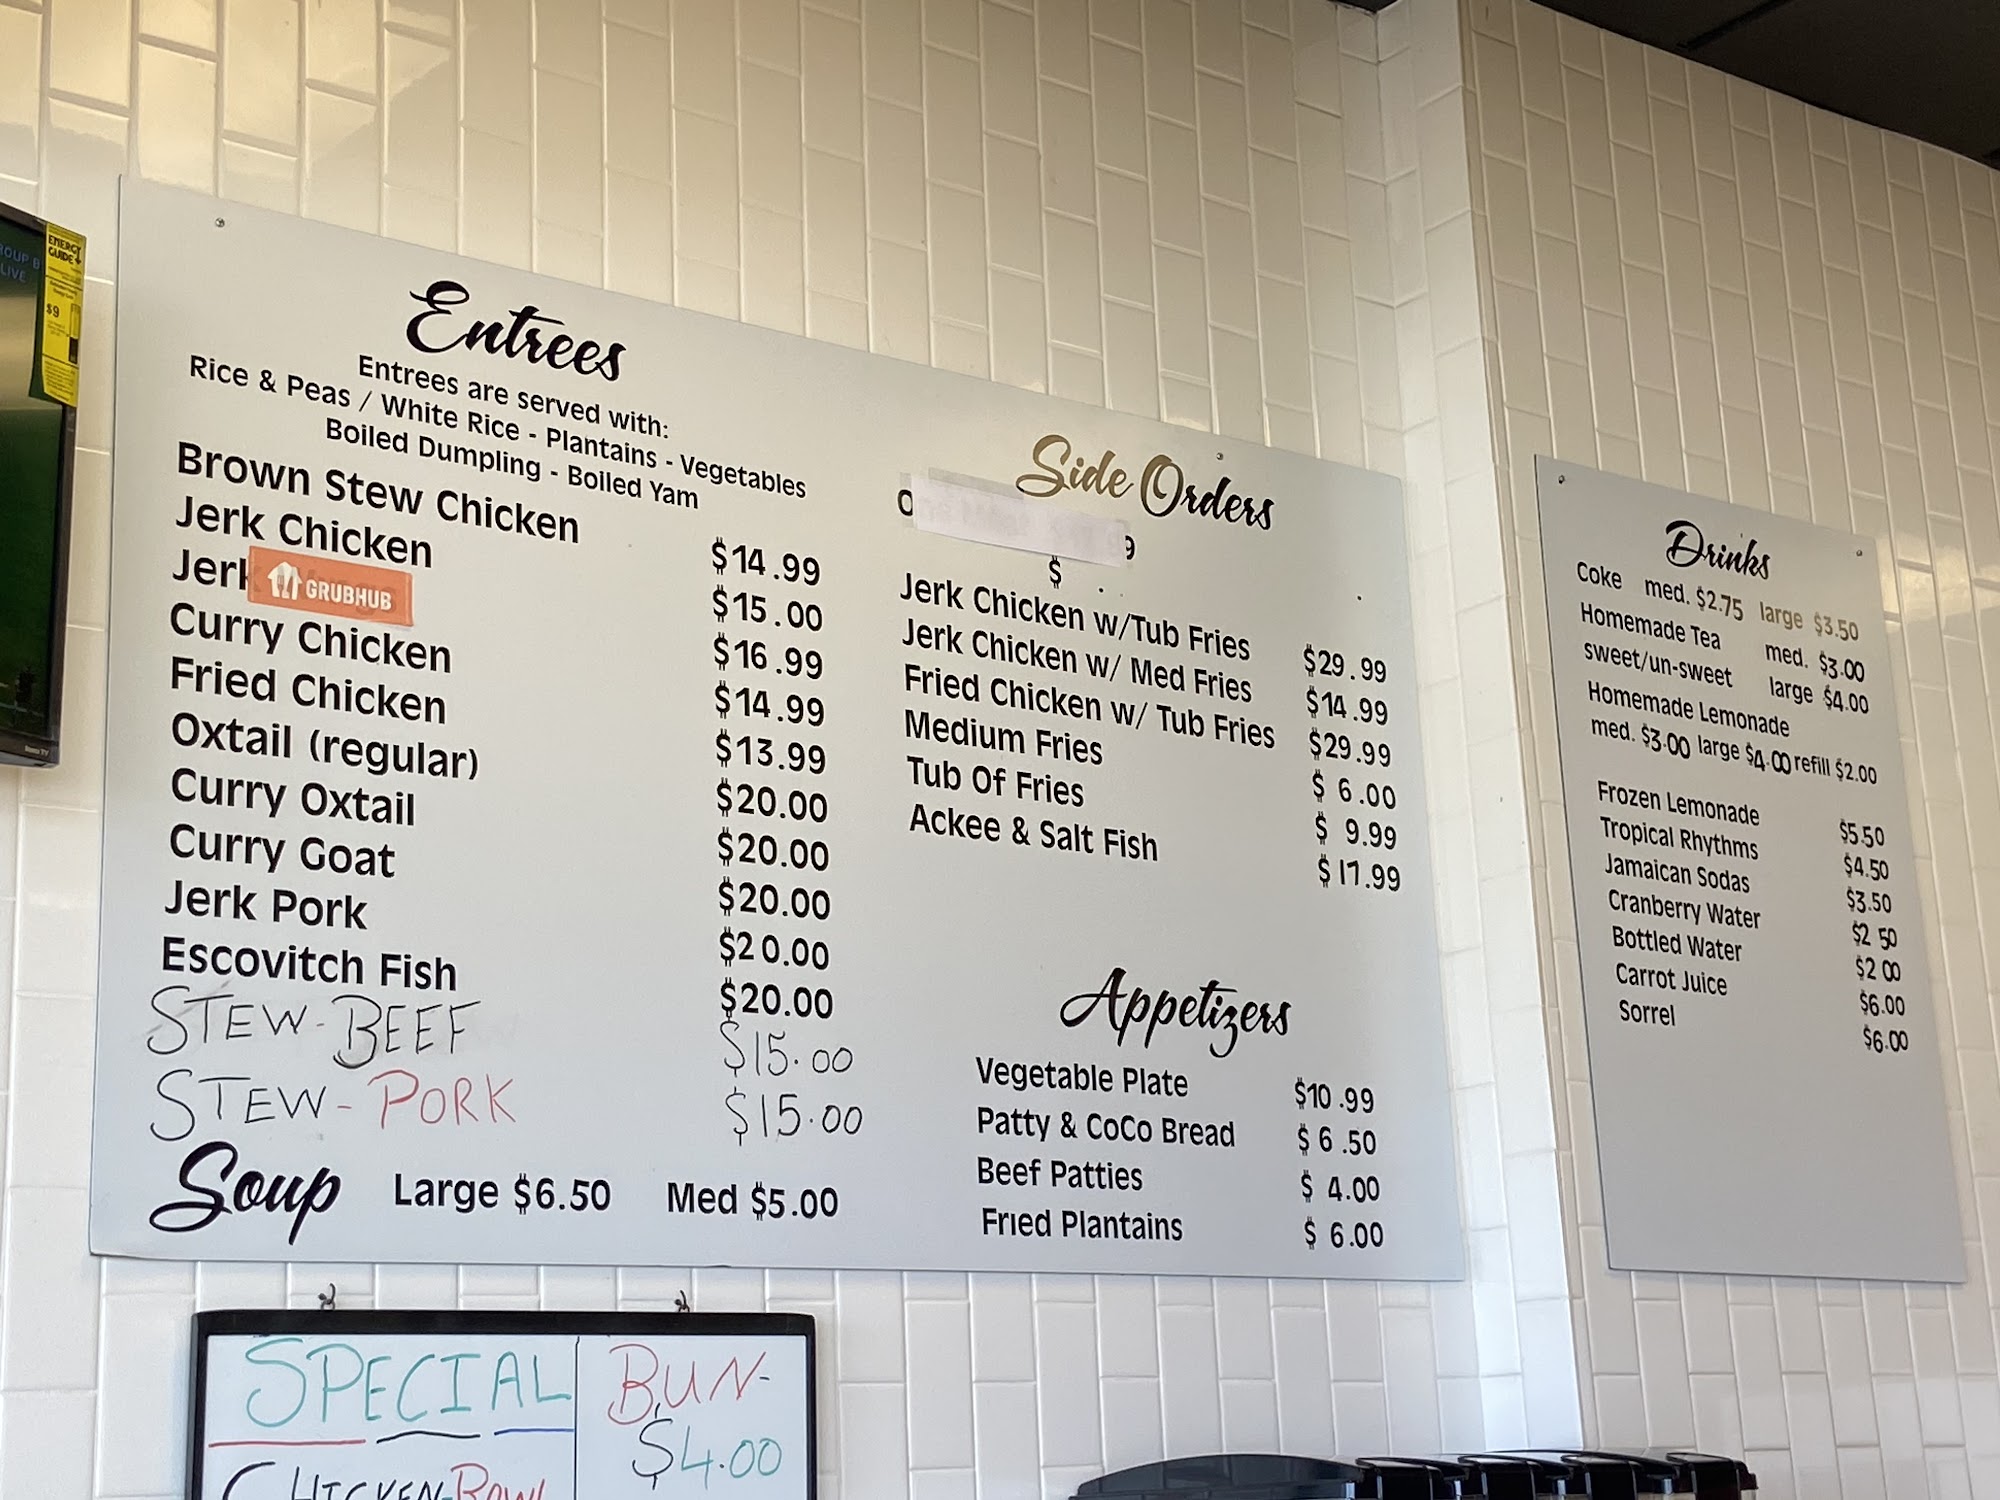 ENERGY
GUIDE
$9
LIVE
Entrees
Entrees are served with:
Rice & Peas / White Rice - Plantains - Vegetables
Boiled Dumpling - Boiled Yam
Brown Stew Chicken $14.99
Jerk Chicken $15.00
Jerk GRUBHUB $16.99
Curry Chicken $14.99
Fried Chicken $13.99
Oxtail (regular) $20.00
Curry Oxtail $20.00
Curry Goat $20.00
Jerk Pork $20.00
Escovitch Fish $20.00
STEW-BEEF $15.00
STEW-PORK $15.00
Soup Large $6.50 Med $5.00
Side Orders
$
Jerk Chicken w/Tub Fries $29.99
Jerk Chicken w/ Med Fries $14.99
Fried Chicken w/ Tub Fries $29.99
Medium Fries $ 6.00
Tub Of Fries $ 9.99
Ackee & Salt Fish $17.99
Appetizers
Vegetable Plate $10.99
Patty & CoCo Bread $ 6.50
Beef Patties $ 4.00
Fried Plantains $ 6.00
Drinks
Coke med. $2.75 large $3.50
Homemade Tea med. $3.00
sweet/un-sweet large $4.00
Homemade Lemonade
med. $3.00 large $4.00 refill $2.00
Frozen Lemonade $5.50
Tropical Rhythms $4.50
Jamaican Sodas $3.50
Cranberry Water $2 50
Bottled Water $2 00
Carrot Juice $6.00
Sorrel $6.00
SPECIAL
CHICKEN-BOWL
BUN-
$4.00